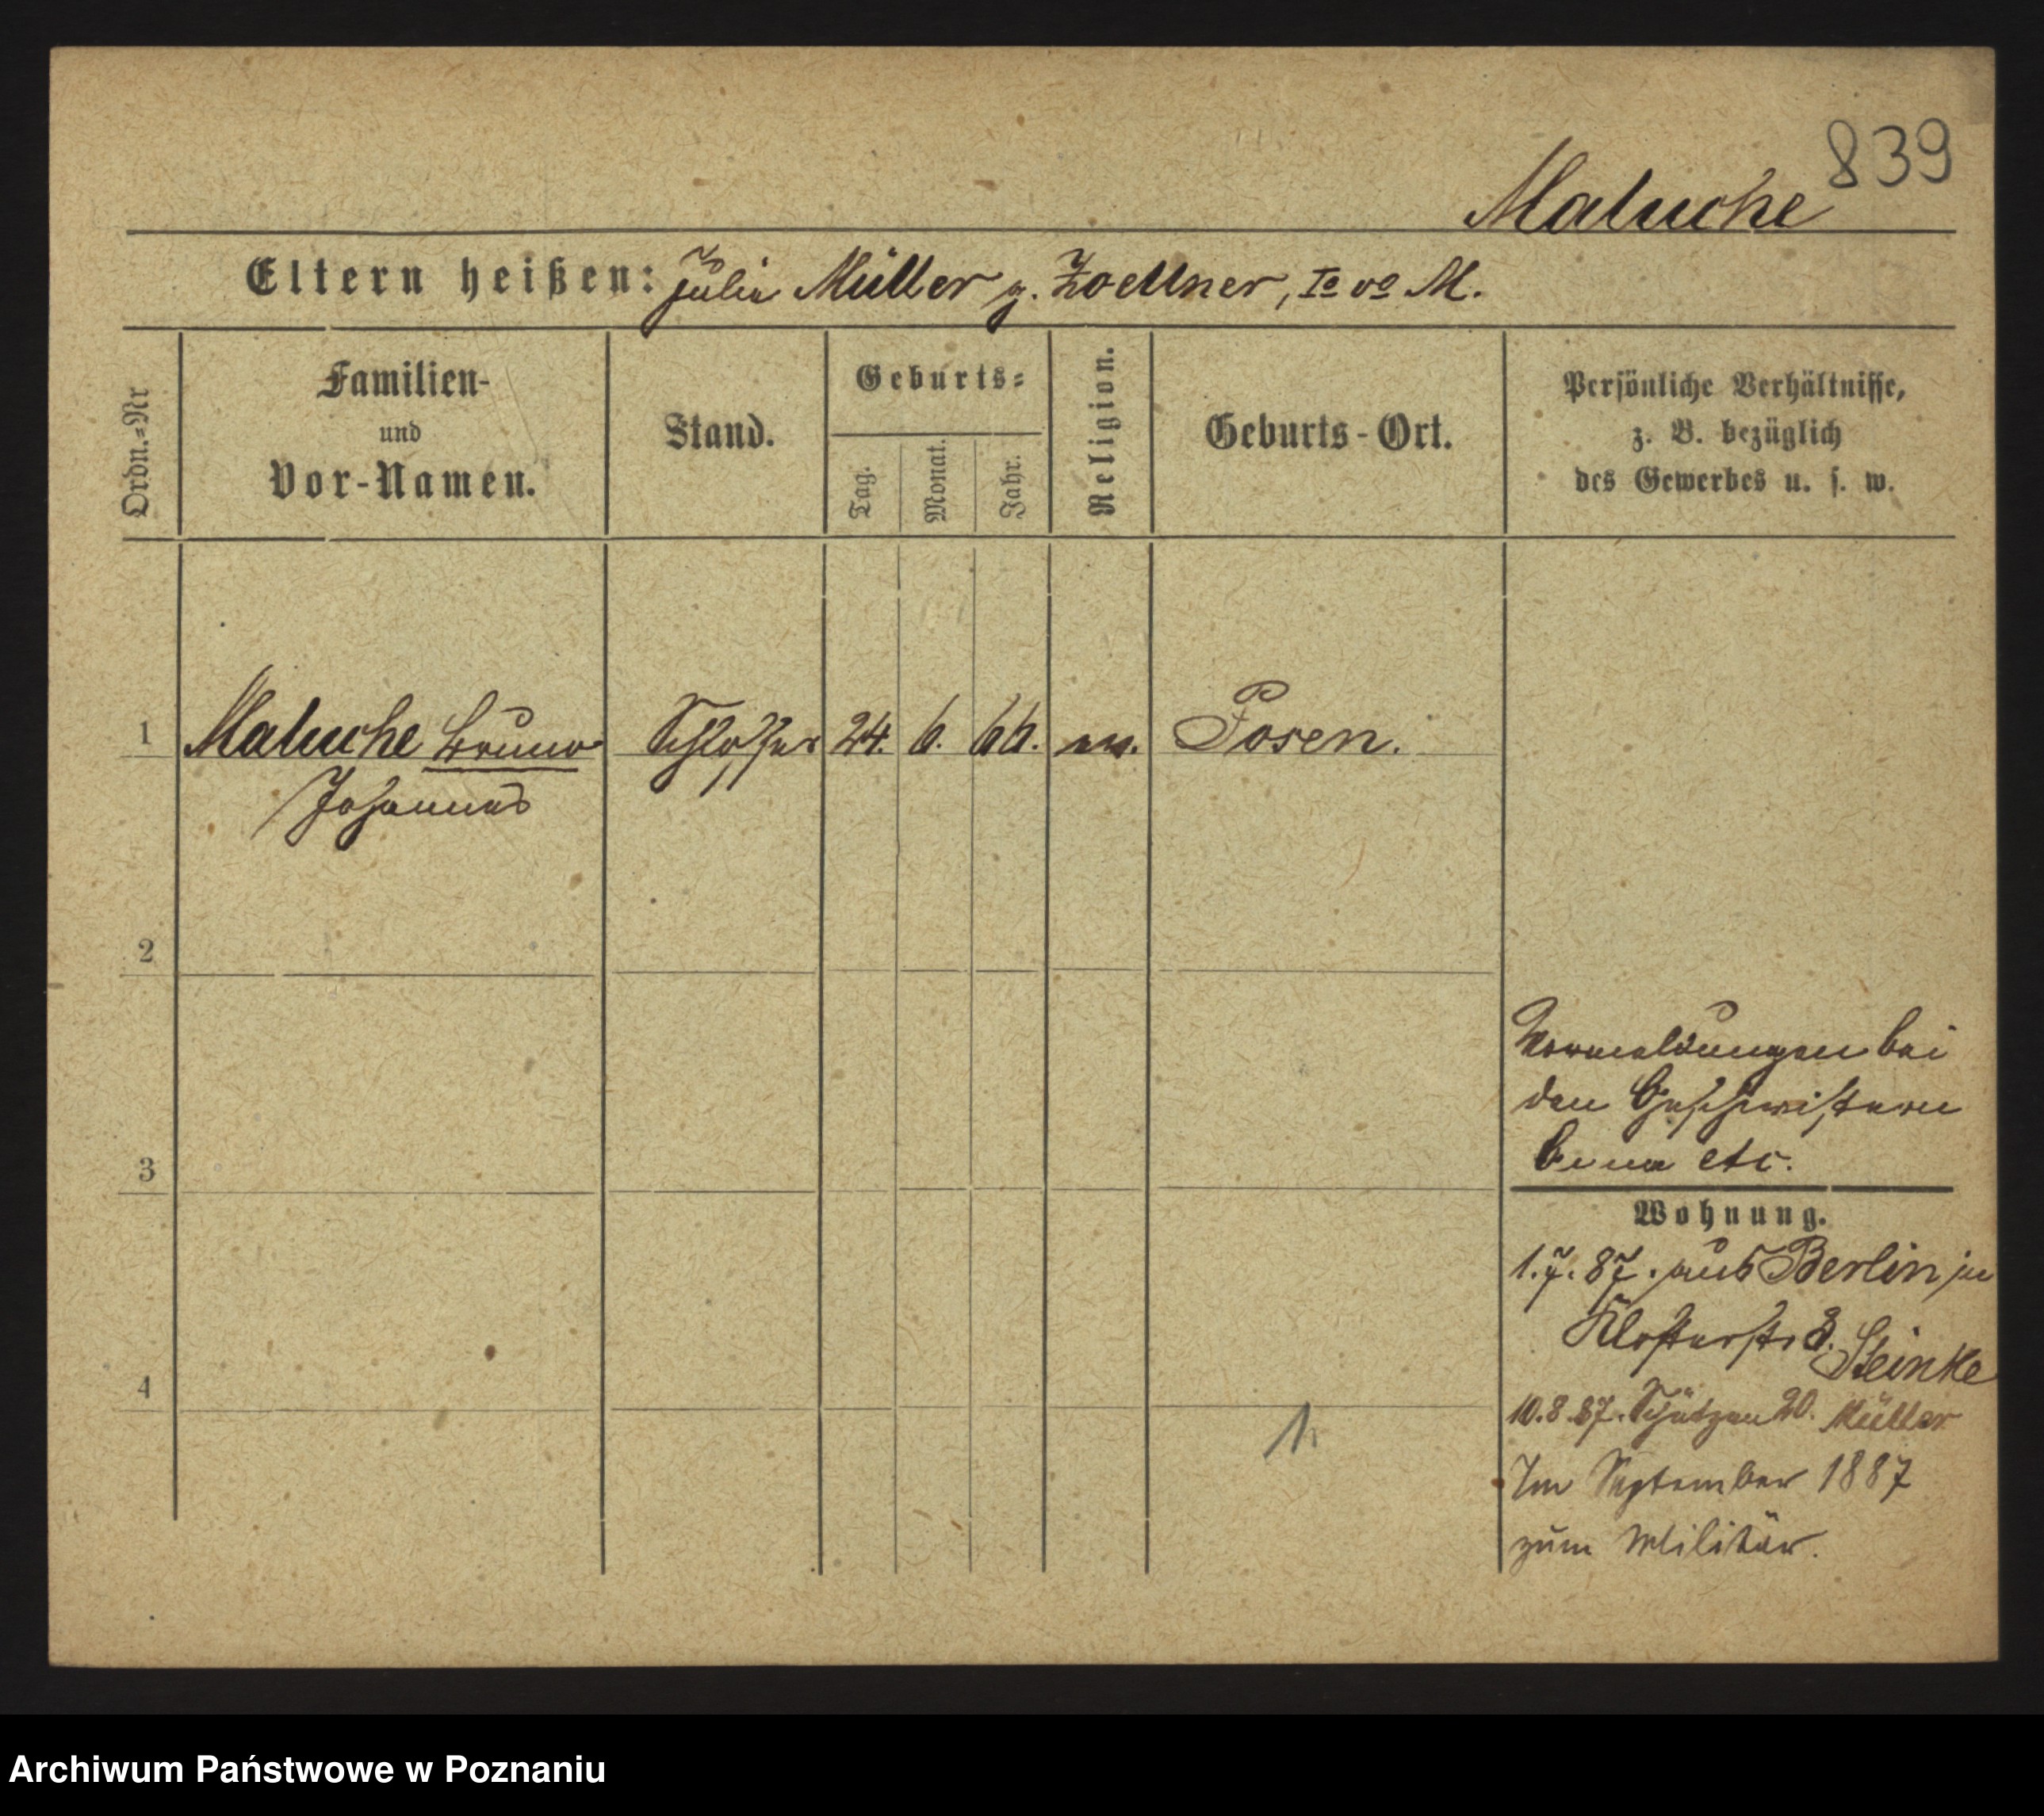 839
Maluche
Eltern heißen: Julie Müller g. Zoellner, Io vo M.
Ordn.-Nr
Familien-
und
Vor-Namen.
Stand.
Geburts-
Tag.
Monat.
Jahr.
Religion.
Geburts-Ort.
Persönliche Verhältnisse,
z. B. bezüglich
des Gewerbes u. s. w.
1 Maluche Bruno Schlosser 24. 6. 66. ev. Posen.
Johannes
2
Vormeldungen bei
den Geschwistern
etc.
3
Wohnung.
1.7.87. aus Berlin in
Klosterstr 3. Steinke
4
10.8.87. Schützen 20. Müller
1.
Im September 1887
zum Militär.
Archiwum Państwowe w Poznaniu